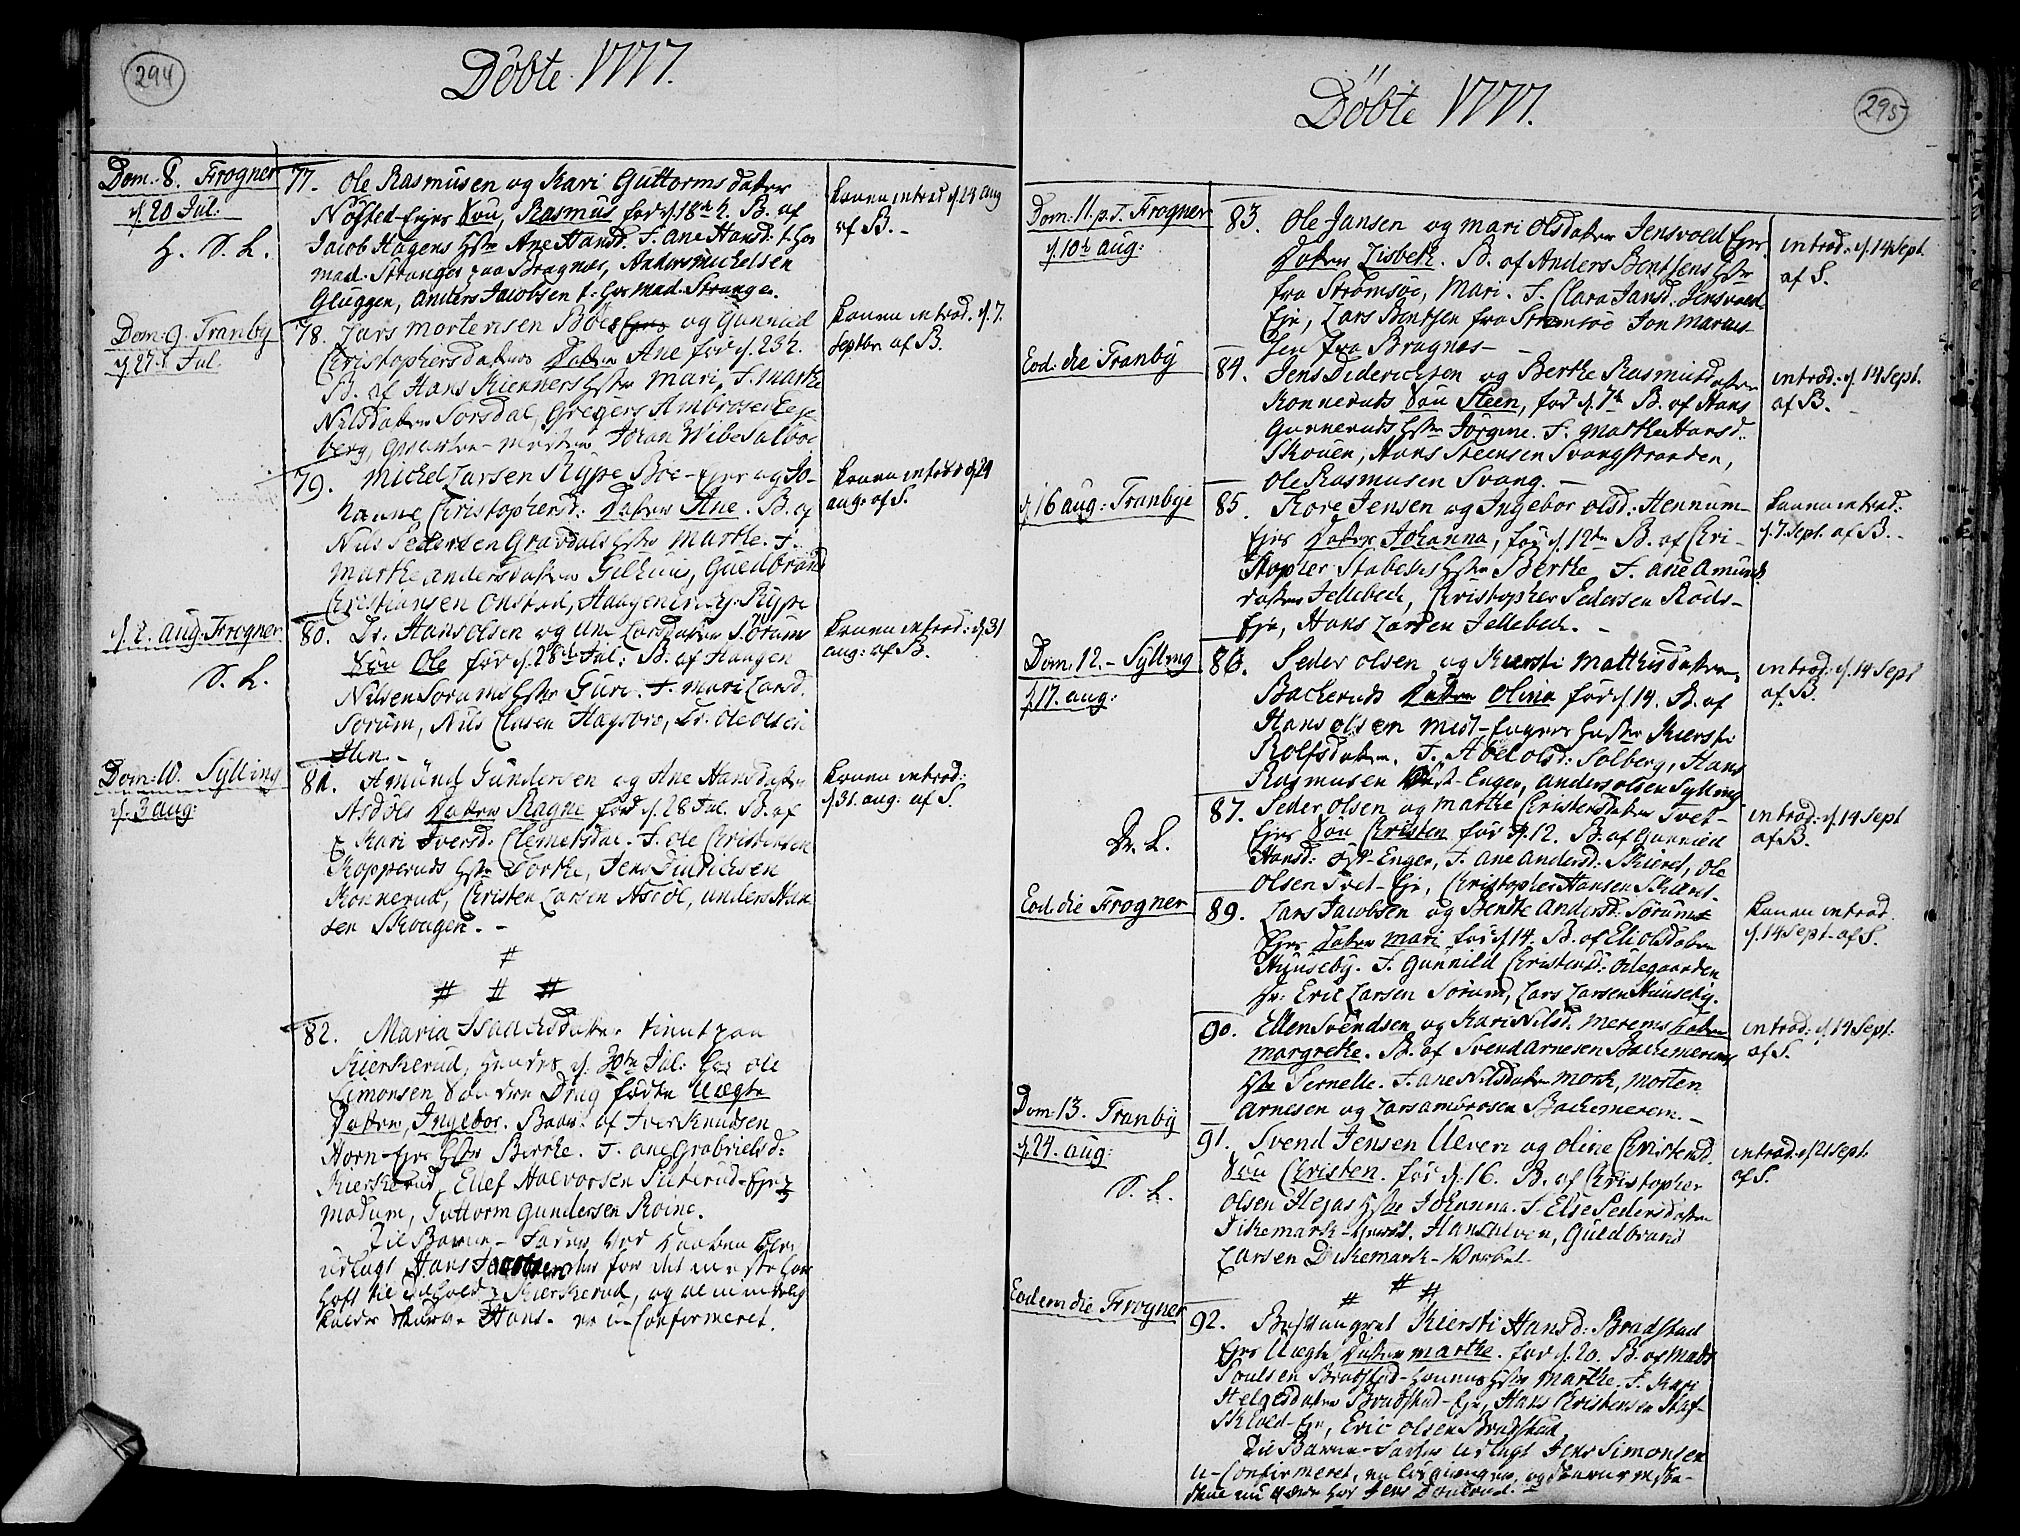 294
Döbte 1777.
Dom. 8. Frogner
d. 20 Jul:
H. S. L.
77. Ole Rasmusen og Kari Guttorms datter
Nøsted-Ejes Søn, Rasmus fød d. 18de h. B. af
Jacob Hagens hstr Ane Hansd. F. Ane Hansd: t. hos
mad. Stranger paa Bragnes, Anders Michelsen
Gluggen, Anders Jacobsen t. hos mad. Strange.
Konen introd d. 24 Aug
af B. -
Dom: 9. Tranby
d. 27. Jul.
78. Lars Mortensen Böes og Gunnild
Christophersdatters Datter Ane fød d. 23 h.
B. af Hans Kienners hstr Mari, F. Marthe
Nilsdatter Sorsdal, Gregers Ambrosen Eje
berg, Johan Wibe Solböe
Konen introd. d. 7.
Septbr af B.
79. Michel Larsen Rype Böe-Ejes og Jo-
hanne Christophersd: Datter Ane. B. af
Nils Pedersen Gravdals hstr Marthe. F.
Marthe Andersdatter Gilhuus, Guldbrand
Christiansen Onstad, Haagen Rype
Konen introd d. 24
aug. af S.
d. 2. Aug. Frogner
S. L.
80. Hr. Hans Olsen og Une Larsdatter Sörums
Søn Ole fød d. 28de Jul: B. af Haagen
Nilsen Sorums hstr Guri. F. Mari Larsd.
Sorum, Nils Clasen Hagebro, Hr. Ole Olsen
Sten. -
Konen introd: d. 31
aug: af B.
Dom: 10. Sylling
d. 3 aug:
81. Amund Gundersen og Ane Hansdatter
Asdöls Datter Ragne fød d. 28 Jul. B. af
Kari Iversd: Clemetsdal. F. Ole Christensen
Kopperuds hstr Dorthe, Jens Didrichsen
Konnerud, Christen Larsen Asdöl, Anders Han
sen Skougen. -
Konen introd:
d. 31. aug: af S.
#
# # #
82. Maria datter tient paa
Kierkerud, hendes d. 30te Jul: hos Ole
Simonsen fødte Uægte
Datter, Ingebor. Baar. af Iver Knudsen
Horn-Ejes hstr Berthe. F. Ane Gabrielsd:
Kierkerud, Ellef Halvorsen Ejet
Modum, Guttorm Gundersen Roine.
Til Barne-Fader ved Daaben blev
udlagt Hans for det meste har
haft til Tilhold i Kierkerud, og almindelig
kaldes Hans. er u-Confirmeret.
295
Döbte 1777.
Dom: 11. p. T. Frogner
d. 10de aug:
83. Ole Jansen og Mari Olsdatter Jensvold Ejes
Datter Lisbeth. B. af Anders Bentsens hstr
fra Strømsøe, Mari. F. Clara Jansd. Jensvold
Eje, Lars Bentsen fra Strømsøe Jon Marcus
sen fra Bragnes -
introd: d. 14 Sept.
af S.
Eod: die Tranby
84. Jens Diderichsen og Berthe Rasmusdatter
Konneruds Søn Steen, fød d. 7de B. af Hans
Gunneruds hstr Jörgine. F. Marthe Hansd.
Skouen, Hans Steensen Svangstranden,
Ole Rasmusen Svang. -
introd: d. 14 Sept.
af B.
d. 16 aug: Tranbye
85. Tore Jensen og Ingebor Olsd: Hennum-
Ejes Datter Johanna, fød d. 12te B. af Chri-
stopher Stabeks hstr Berthe F. Ane Amunds
datter Jellebech, Christopher Pedersen Röds-
Eje, Hans Larsen Jellebech. -
Konen introd:
d. 7. Sept. af B. -
Dom: 12. - Sylling
d. 17. aug:
86. Peder Olsen og Kiersti Matthisdatter
Bacheruds Datter Olina fød d. 14. B. af
Hans Olsen Midt-Engers hstr Kiersti
Rolfsdatter. F. Abel Olsd: Solberg, Hans
Rasmusen Öst-Enger, Anders Olsen Sylling.
introd: d. 14 Sept
af B.
Dr. L.
87. Peder Olsen og Marthe Christensdatter Tvet-
Ejes Søn Christen fød d. 12. B. af Gunnild
Hansd: Öst-Enger, F. Ane Andersd: Skieret, Ole
Olsen Tvet-Eje, Christopher Hansen Skieret.
introd: d. 14 Sept
af B.
Eod. die Frogner
89. Lars Jacobsen og Benthe Andersd. Sörums
Ejes Datter Mari fød d. 14. B. af Eli Olsdatter
Huuseby. F. Gunnild Christensd: Odegaarden
Hr. Eric Larsen Sorum, Lars Larsen Huuseby.
Konen introd.
d. 14 Sept. af S.
90. Ellen Svendsen og Kari Nilsd. Merems Datter
Margrethe. B. af Svend Arnesen Bachemerems
hstr Pernelle. F. Ane Nilsdatter Morch, Morten
Arnesen og Lars Ambrosen Bachemerem. -
introd: d. 14 Sept.
af S.
Dom: 13. Tranby
d. 24. aug:
S. L.
91. Svend Jensen Ulven og Oline Christensd.
Søn Christen. fød d: 16. B. af Christopher
Olsen Hegas hstr Johanna. F. Else Pedersdatter
Dikemark-Verket, Hans Ulven, Guldbrand
Larsen Dikemark-Verket.
introd: d. 21 Sept.
af S.
# # #
Eodem die Frogner
92. Kiersti Hansd: Bradstad
Ejes Uægte Datter Marthe. fød d. 20. B. af Mads
Poulsen Bradstad-hennes hstr Marthe. F. Kari
Helgesdatter Bradstad-Eje, Hans Christensen Staf-
Skield-Eje, Eric Olsen Bradstad
Til Barne-Fader Udlagt Jens Simonsen
U-Confirmeret, og
nu er hos Jens